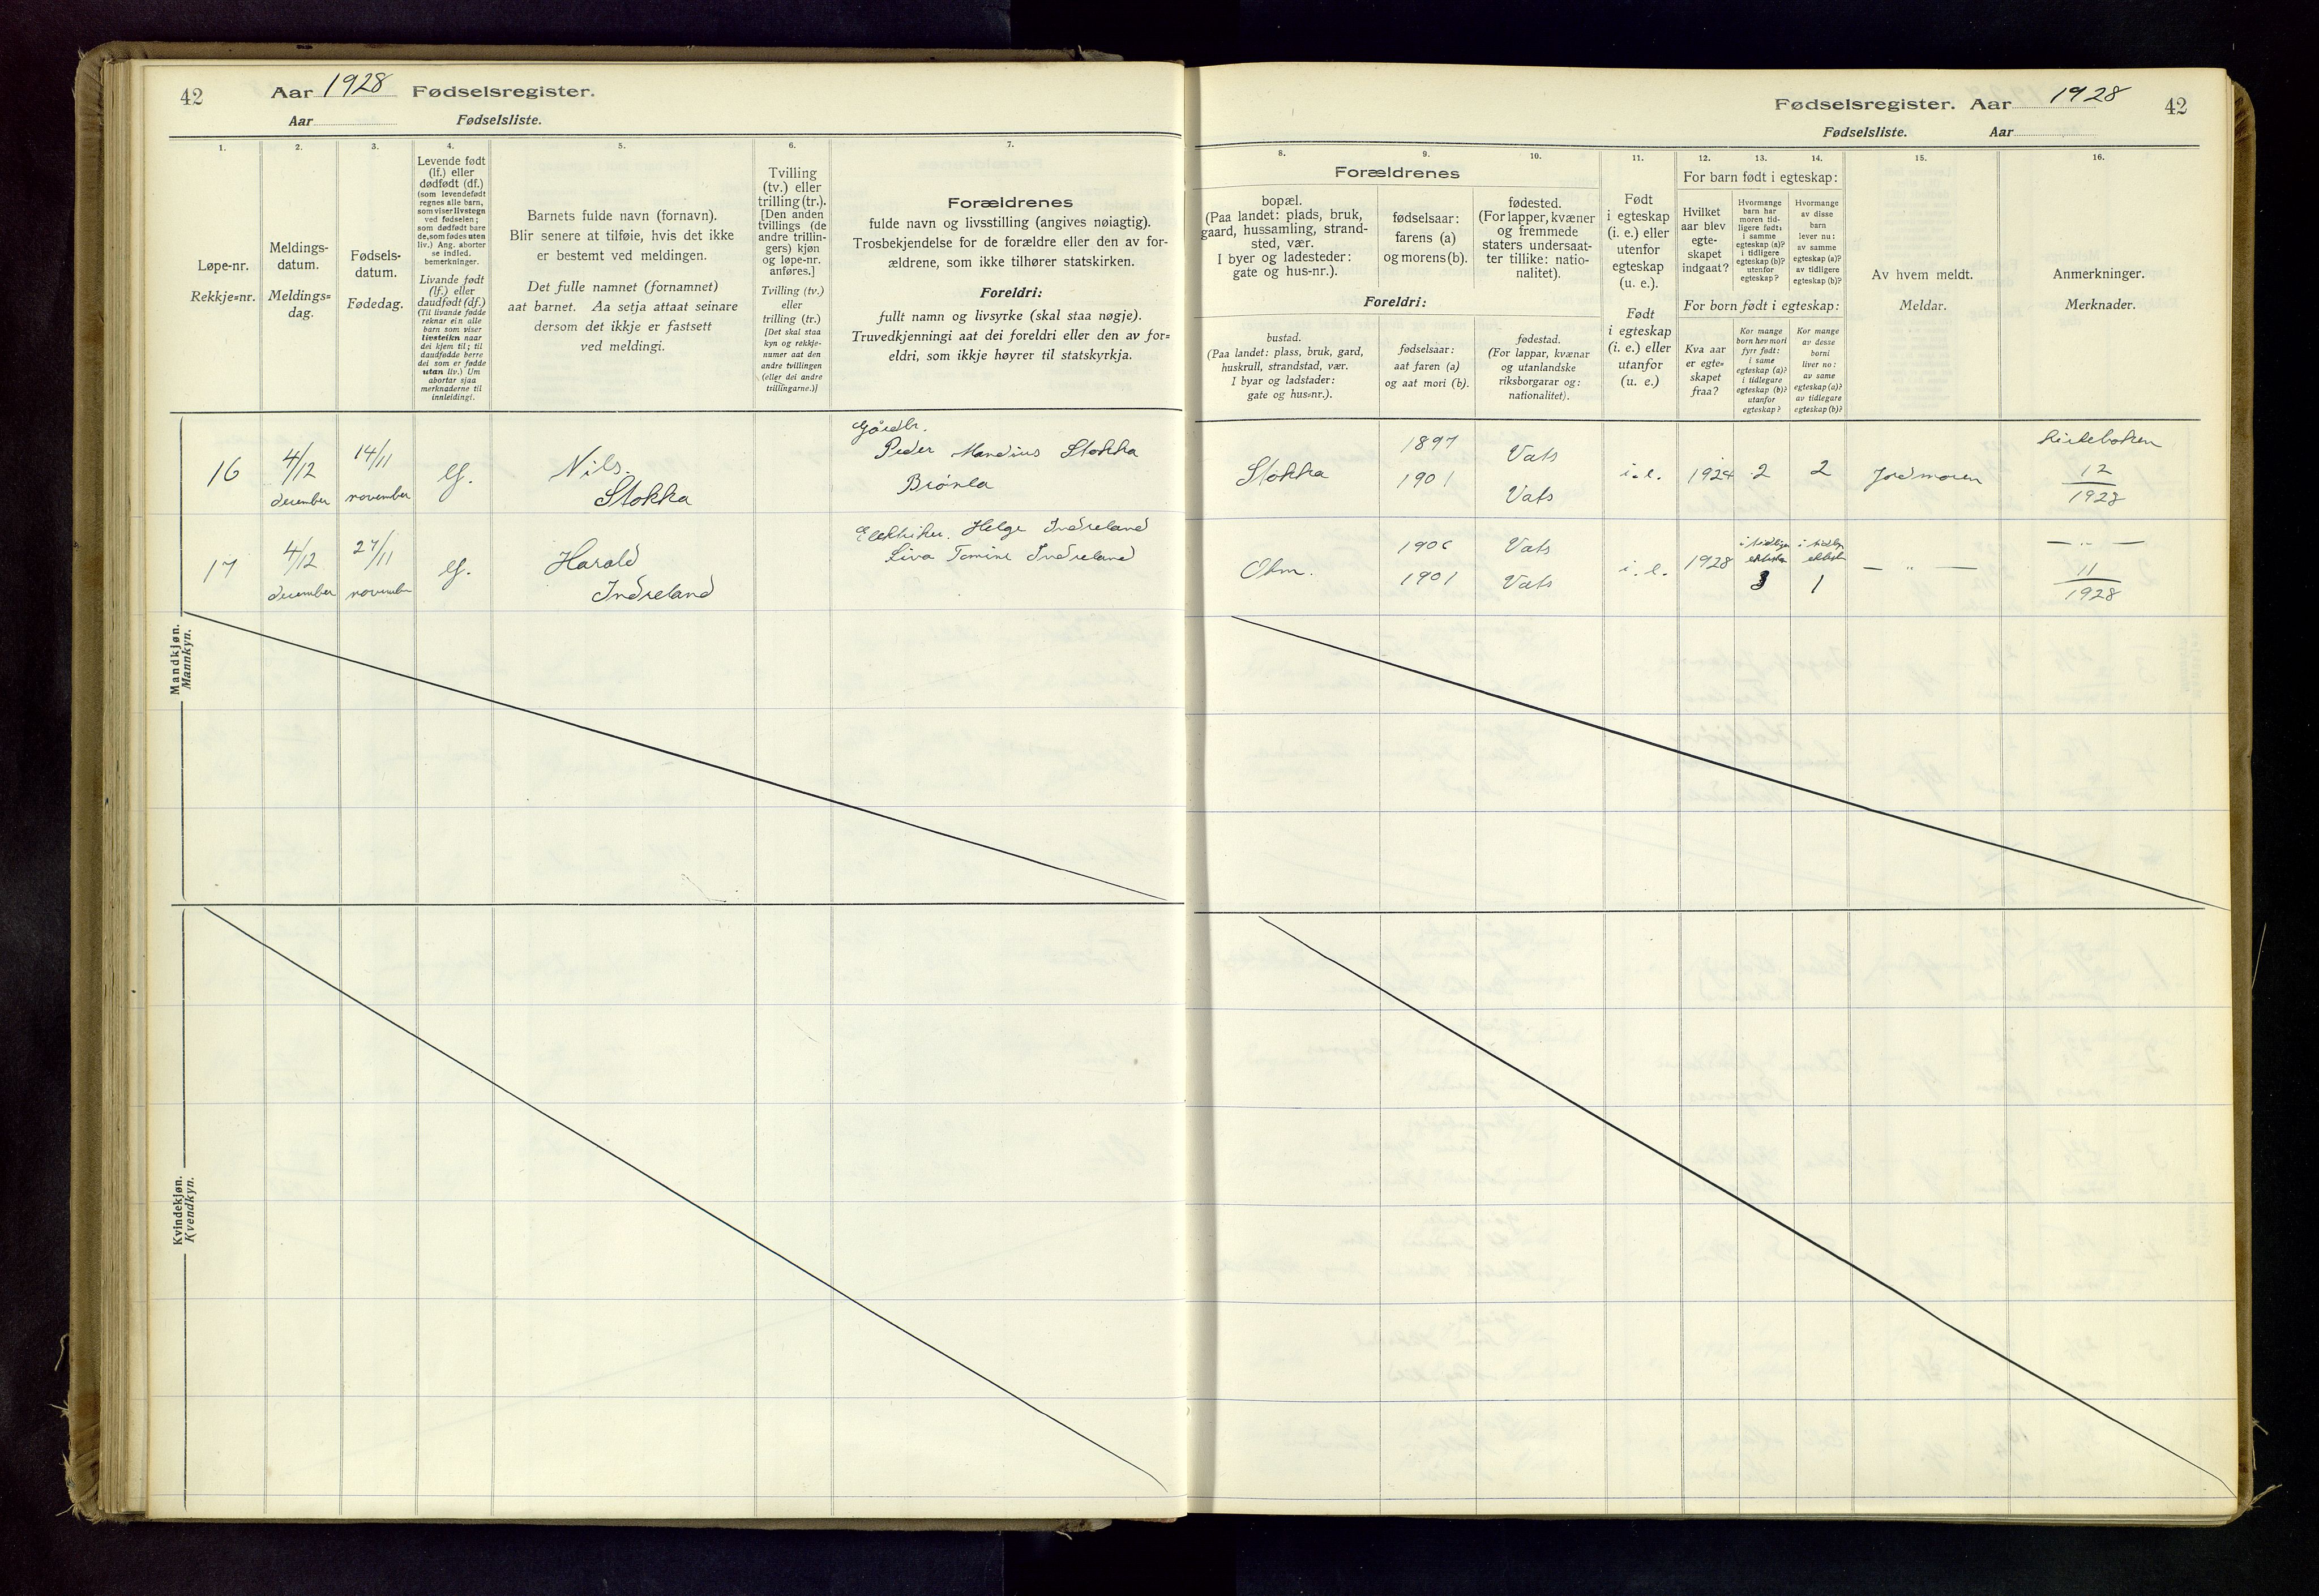 42
Aar 1928 Fødselsregister.
Aar Fødselsliste.
1.
2.
3.
4.
5.
6.
7.
Løpe-nr.
Rekkje=nr.
Meldings-
datum.
Meldings=
dag.
Fødsels-
datum.
Fødedag.
Levende født
(lf.) eller
dødfødt (df.)
(som levendefødt
regnes alle barn,
som viser livstegn
ved fødselen;
som dødfødt bare
de, som fødes uten
liv.) Ang. aborter
se indled.
bemerkninger.
Livande født
(lf.) eller
daudfødt (df.)
(Til livande fødde
reknar ein alle
barn som viser
livsteikn naar
dei kjem til; til
daudfødde berre
dei som er fødde
utan liv.) Um
abortar sjaa
merknaderne til
innleidingi.
Barnets fulde navn (fornavn).
Blir senere at tilføie, hvis det ikke
er bestemt ved meldingen.
Det fulle namnet (fornamnet)
aat barnet. Aa setja attaat seinare
dersom det ikkje er fastsett
ved meldingi.
Tvilling
(tv.) eller
trilling (tr.).
[Den anden
tvillings (de
andre trillin-
gers) kjøn
og løpe-nr.
anføres.]
Tvilling (tv.)
eller
trilling (tr.)
[Det skal staa
kyn og rekkje-
numer aat den
andre tvillingen
(eller dei andre
trillingarne.)]
Forældrenes
fulde navn og livsstilling (angives nøiagtig).
Trosbekjendelse for de forældre eller den av for-
ældrene, som ikke tilhører statskirken.
Foreldri:
fullt namn og livsyrke (skal staa nøgje).
Truvedkjenningi aat dei foreldri eller den av for=
eldri, som ikkje høyrer til statskyrkja.
Mandkjøn.
Mannkyn.
16
4/12
december
14/11
november
lf.
Nils.
Stokka
Gårdbr.
Peder Mandius Stokka
17
4/12
december
27/11
november
lf.
Harald
Indreland
Elektriker. Helge Indreland
Tomine Indreland
Kvindekjøn.
Kvendkyn.
Fødselsregister. Aar 1928
42
Fødselsliste. Aar
8.
9.
10.
11.
12.
13.
14.
15.
16.
Forældrenes
bopæl.
(Paa landet: plads, bruk,
gaard, hussamling, strand-
sted, vær.
I byer og ladesteder:
gate og hus-nr.).
fødselsaar:
farens (a)
og morens (b).
fødested.
(For lapper, kvæner
og fremmede
staters undersaat-
ter tillike: natio-
nalitet).
Foreldri:
bustad.
(Paa landet: plass, bruk, gard,
huskrull, strandstad, vær.
I byar og ladstader:
gate og hus=nr.).
fødselsaar:
aat faren (a)
og aat mori (b).
fødestad.
(For lappar, kvænar
og utanlandske
riksborgarar og:
nationalitet).
Født
i egteskap
(i. e.) eller
utenfor
egteskap
(u. e.).
Født
i egteskap
(i. e.) eller
utanfor
(u. e.)
For barn født i egteskap:
Hvilket
aar blev
egte-
skapet
indgaat?
Hvormange
barn har
moren tid-
ligere født:
i samme
egteskap (a)?
i tidligere
egteskap (b)?
utenfor
egteskap?
Hvormange
av disse
barn
lever nu:
av samme
egteskap (a)?
av tidligere
egteskap (b)?
For born født i egteskap:
Kva aar
er egte=
skapet
fraa?
Kor mange
born hev mori
fyrr født:
i same
egteskap (a)?
i tidlegare
egteskap (b)?
utanfor
egteskap?
Kor mange
av desse
borni
liver no:
av same
egteskap (a)?
av tidlegare
egteskap (b)?
Av hvem meldt.
Meldar.
Anmerkninger.
Merknader.
Stokka
1897
1901
Vats
Vats
i. e.
1924
2
2
Jordmoren
Kirkeboken
12
1928
1906
1901
Vats
Vats
i. e.
1928
3
1
— " —
— " —
11
1928